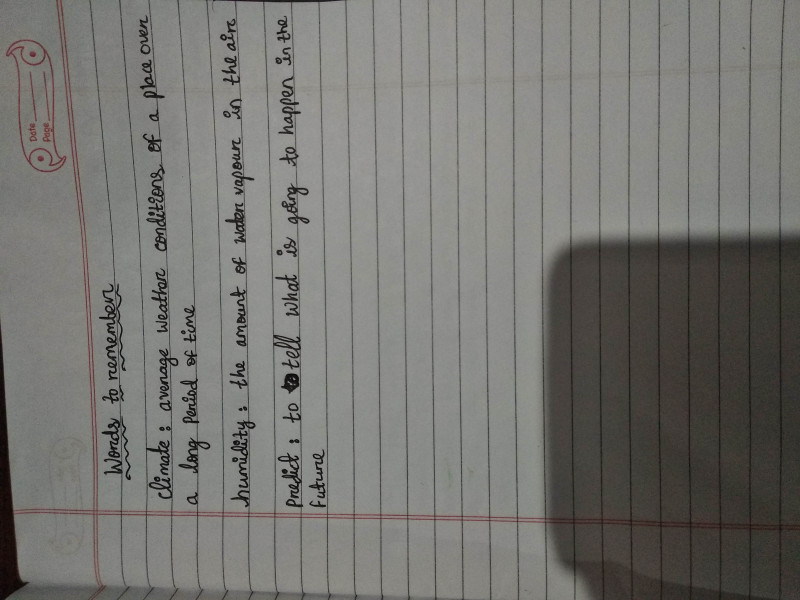 Date
Page
Words to remember
climate : average weather conditions of a place over
a long period of time
humidity : the amount of water vapour in the air
Predict : to tell what is going to happen in the
future